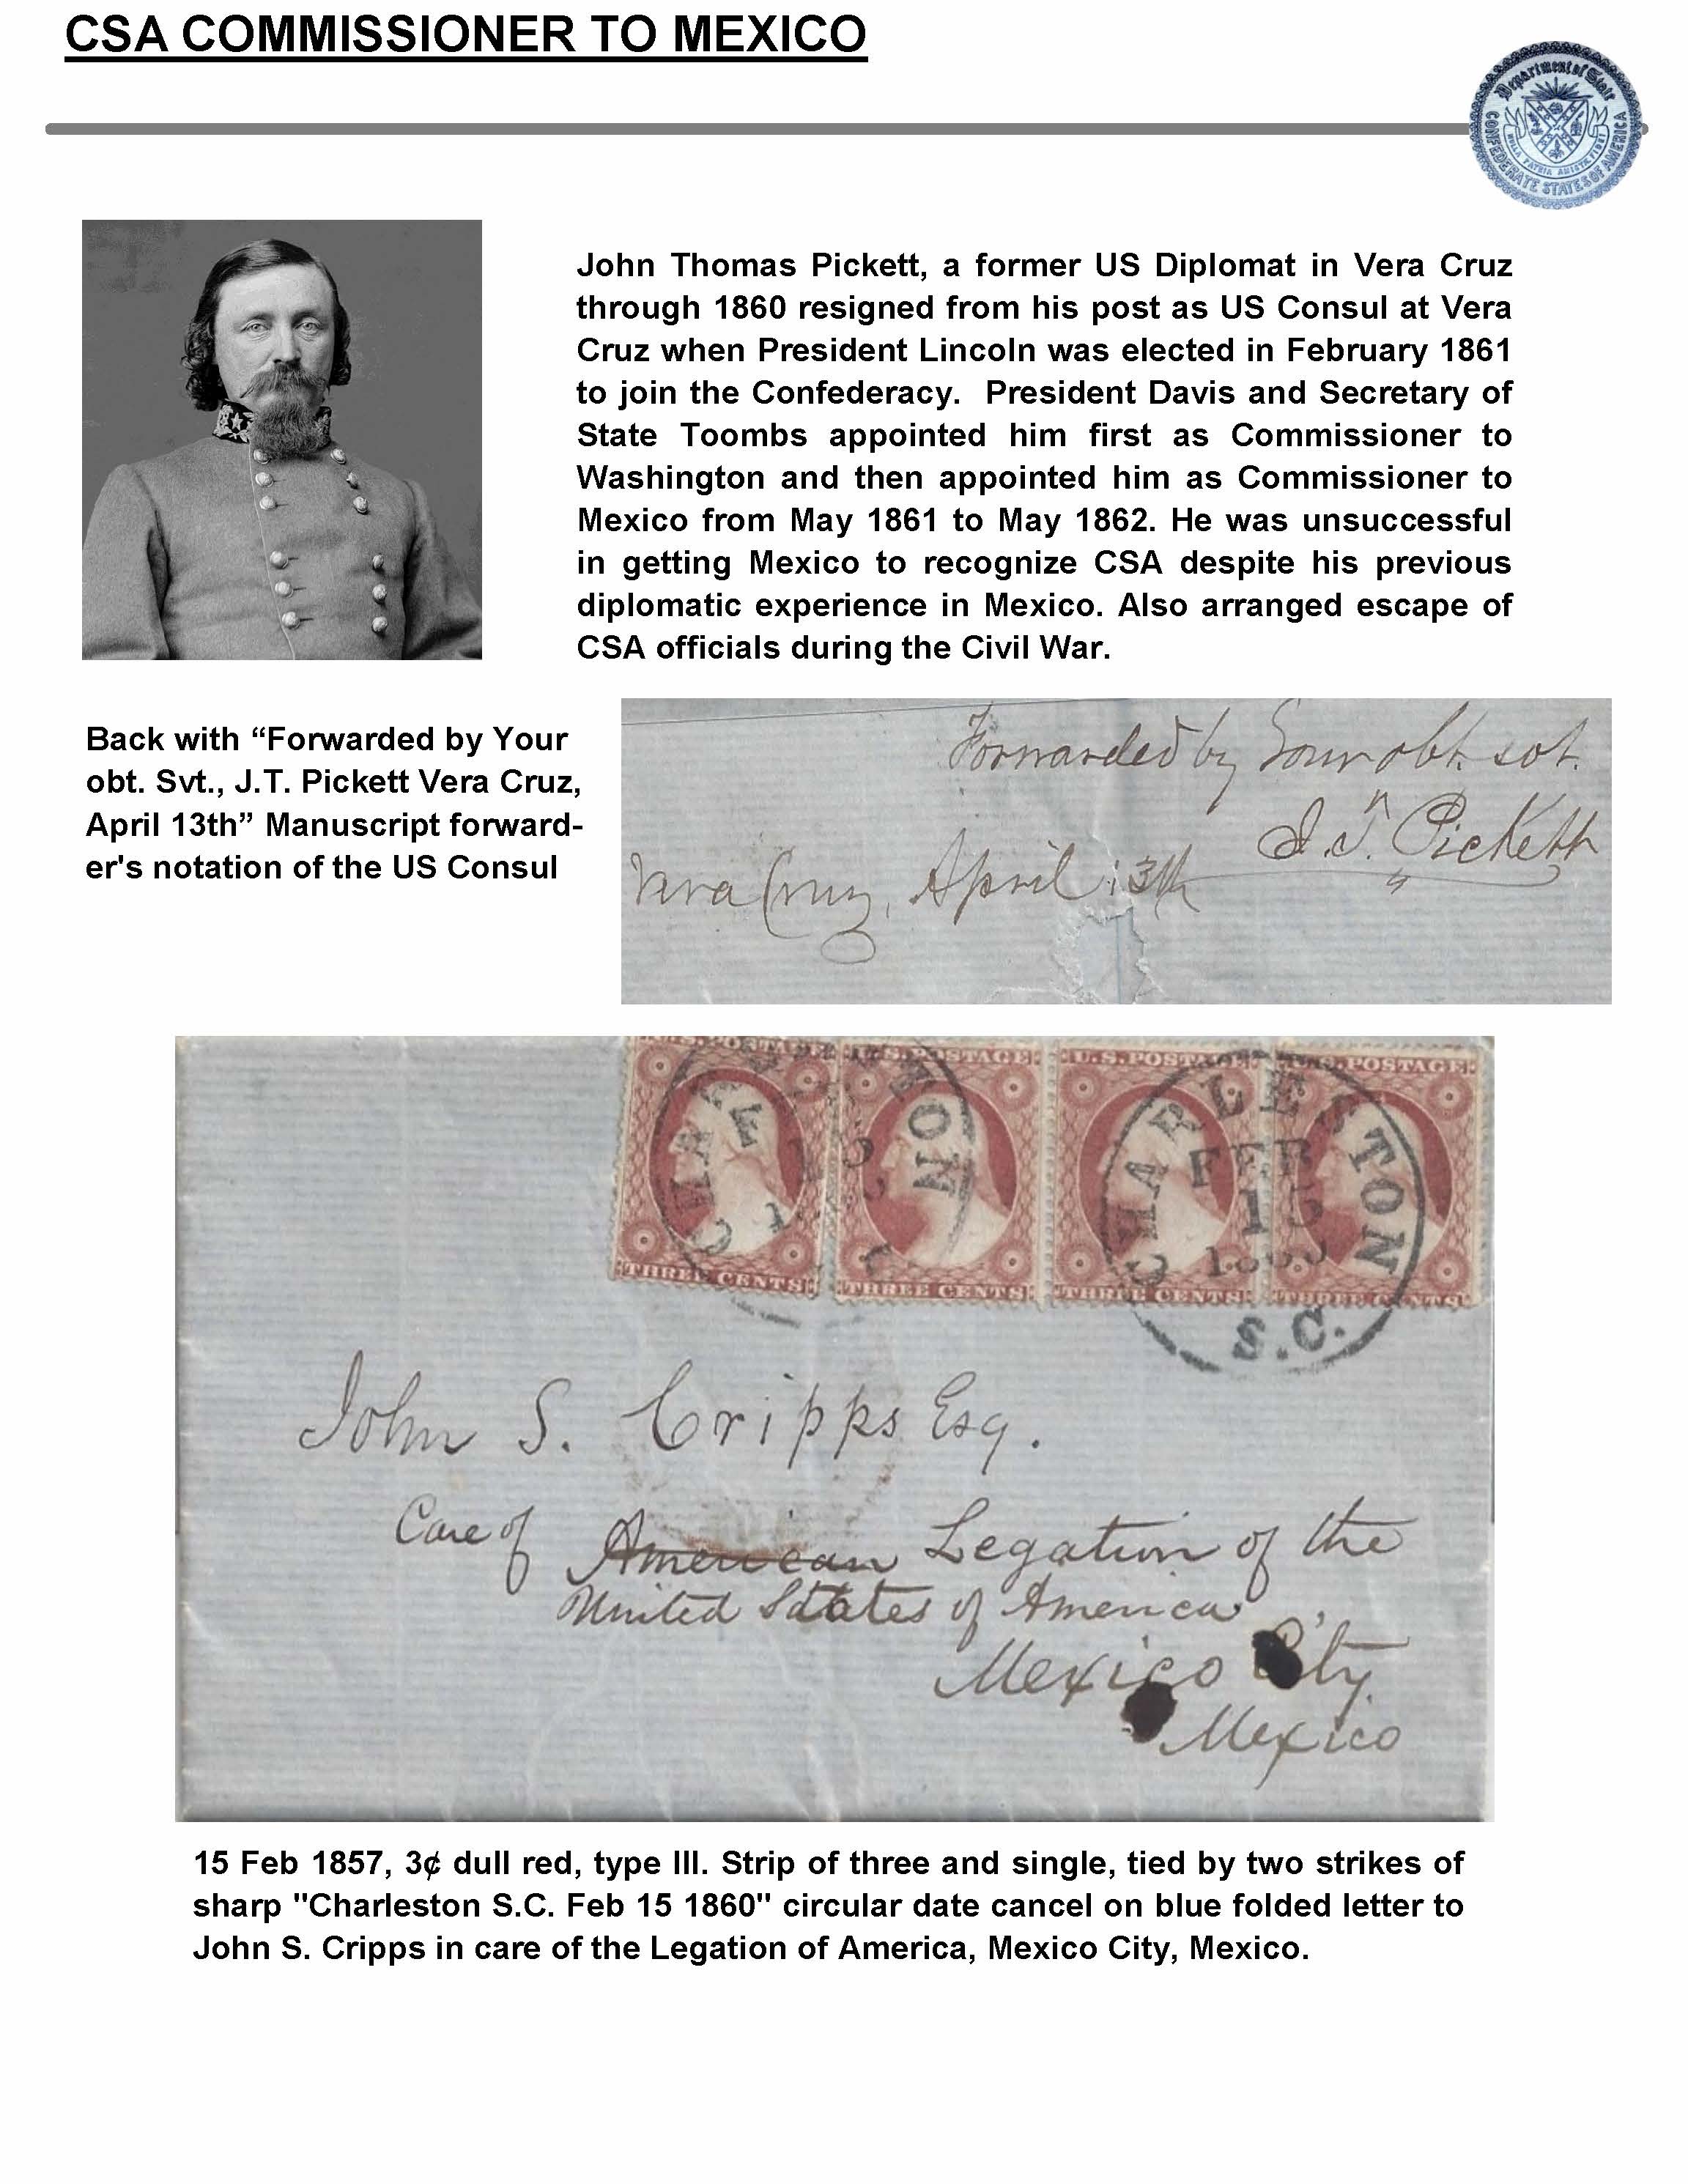 CSA COMMISSIONER TO MEXICO
Department of State
CONFEDERATE STATES OF AMERICA
John Thomas Pickett, a former US Diplomat in Vera Cruz
through 1860 resigned from his post as US Consul at Vera
Cruz when President Lincoln was elected in February 1861
to join the Confederacy. President Davis and Secretary of
State Toombs appointed him first as Commissioner to
Washington and then appointed him as Commissioner to
Mexico from May 1861 to May 1862. He was unsuccessful
in getting Mexico to recognize CSA despite his previous
diplomatic experience in Mexico. Also arranged escape of
CSA officials during the Civil War.
Back with “Forwarded by Your
obt. Svt., J.T. Pickett Vera Cruz,
April 13th” Manuscript forward-
er's notation of the US Consul
Forwarded by Your obt. svt.
J.T. Pickett
Vera Cruz, April 13th
U.S. POSTAGE U.S. POSTAGE U.S. POSTAGE U.S. POSTAGE
CHARLESTON
FEB
15
S.C.
THREE CENTS THREE CENTS THREE CENTS THREE CENTS
John S. Cripps Esq.
Care of American Legation of the
United States of America,
Mexico City.
Mexico
15 Feb 1857, 3¢ dull red, type III. Strip of three and single, tied by two strikes of
sharp "Charleston S.C. Feb 15 1860" circular date cancel on blue folded letter to
John S. Cripps in care of the Legation of America, Mexico City, Mexico.